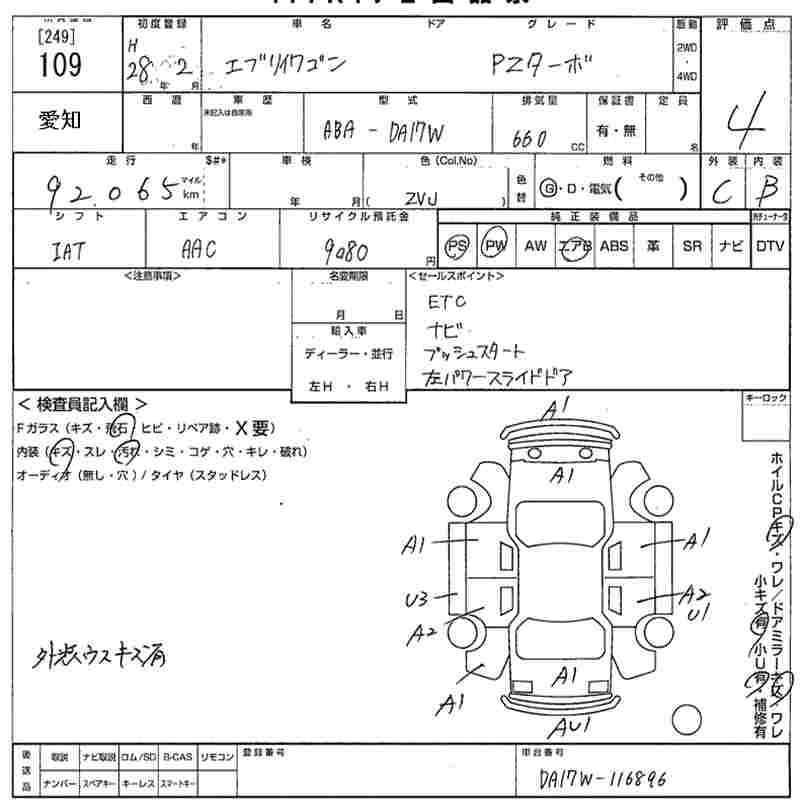 [249]
109
初度登録 車名 ドア グレード 駆動 評価点
H 28年 2月 エブリイワゴン PZターボ 2WD・4WD
愛知
西暦 車歴 型式 排気量 保証書 定員
年 未記入は自家用 ABA-DA17W 660 CC 有・無 名 4
走行 $#* 車検 色(Col,No) 色替 燃料 外装 内装
92.065 マイル km 年 月 ( ZVJ ) G・D・電気( その他 ) C B
シフト エアコン リサイクル預託金 純正装備品
IAT AAC 9080 円 PS PW AW エアB ABS 革 SR ナビ DTV
<注意事項> 名変期限 <セールスポイント>
月 日 ETC
輸入車 ナビ
ディーラー・並行 プッシュスタート
左H ・ 右H 左パワースライドドア
< 検査員記入欄 > キーロック
Fガラス (キズ・飛石・ヒビ・リペア跡・X要)
内装 (キズ・スレ・汚れ・シミ・コゲ・穴・キレ・破れ)
オーディオ (無し・穴) / タイヤ (スタッドレス)
A1
A1
A1 A1
U3 A2
U1
A2
A1
A1
AU1
外装ウスキズ有
ホイルCPキズ・ワレ/ドアミラーキズ/ワレ
小キズ有 小U有・補修有
後返品 取説 ナビ取説 ロム/SD B-CAS リモコン 登録番号 車台番号
ナンバー スペアキー キーレス スマートキー DA17W-116896